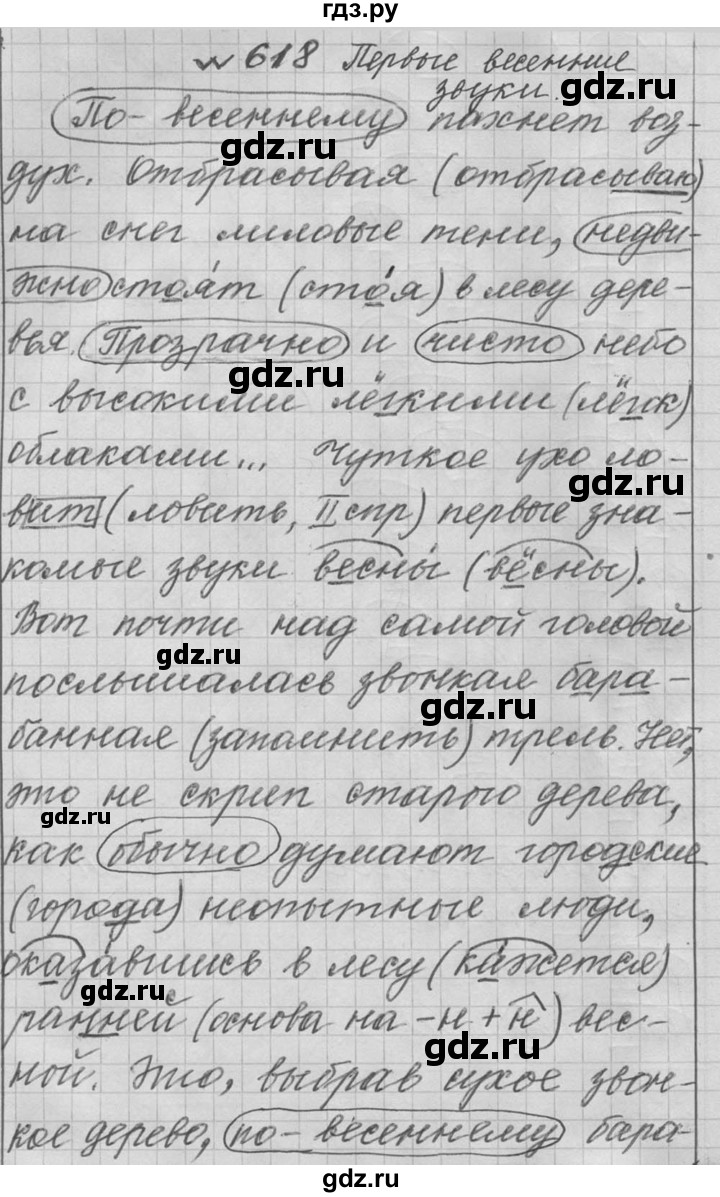 гдз.ру
№ 618 Первые весенние
звуки.
gdz.ru
По-весеннему пахнет воз-
gdz.ru
дух. Отбрасывая (отбрасываю)
на снег лиловые тени, недви-
жно стоят (стоя) в лесу дере-
вья. Прозрачно и чисто небо
gdz.ru
с высокими лёгкими (лёгок)
облаками... Чуткое ухо ло-
gdz.ru
вит (ловить, II спр) первые зна-
комые звуки весны (вёсны).
Вот почти над самой головой
gdz.ru
послышалась звонкая бара-
gdz.ru
банная (запомнить) трель. Нет,
это не скрип старого дерева,
gdz.ru
как обычно думают городские
(города) неопытные люди,
оказавшись в лесу (кажется)
gdz.ru
ранней (основа на -н + н) вес-
gdz.ru
ной. Это, выбрав сухое звон-
кое дерево, по-весеннему бара-
gdz.ru